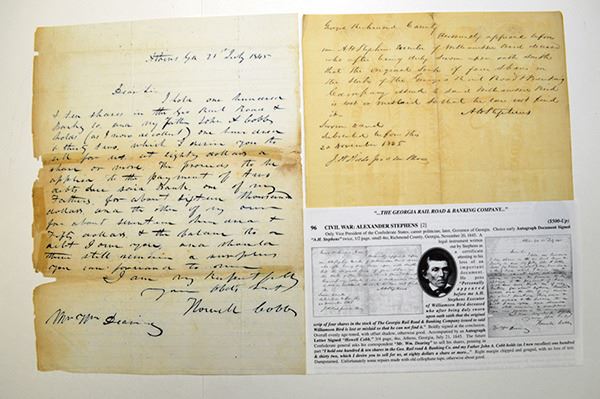 Athens Ga 21st July 1845
Dear Sir
I hold one hundred
& ten shares in the Geo Rail Road &
Banking Co and my Father John A Cobb
holds (as I now recollect) one hundred
& thirty two, which I desire you to
sell for us at eighty dollars a
share or more the proceeds to be
applied to the payment of two
debts due said Bank, one of my
Fathers for about Sixteen thousand
dollars and the other of my own
for about seventeen hundred &
fifty dollars & the balance to a
debt I owe you, and should
there still remain a surplus
you can forward to me
I am very respectfully
your obdt svt
Howell Cobb
Mr Wm Dearing
Georgia Richmond County
Personally appeared before
me A H Stephens Executor of Williamson Bird deceased
who after being duly sworn upon oath deposes
that the original scrip of four shares in
the stock of The Georgia Rail Road & Banking
Company issued to said Williamson Bird
is lost or mislaid so that he can not find
it
A H Stephens
Sworn to and
subscribed before this
20 November 1845
"...THE GEORGIA RAIL ROAD & BANKING COMPANY..."
96 CIVIL WAR: ALEXANDER STEPHENS [2] ($500-Up)
Only Vice President of the Confederate States, career politician, later, Governor of Georgia. Choice early Autograph Document Signed
"A.H. Stephens" twice, 1/2 page, small 4to, Richmond County, Georgia, November 20, 1845. A
legal instrument written
out by Stephens in
which he is
attesting to his
loss of an
important
document.
He pens:
"Personally
appeared
before me A.H.
Stephens Executor
of Williamson Bird deceased
who after being duly sworn
upon oath said that the original
scrip of four shares in the stock of The Georgia Rail Road & Banking Company issued to said
Williamson Bird is lost or mislaid so that he can not find it." Boldly signed at the conclusion.
Overall evenly age-toned, with offset shadow, otherwise good. Accompanied by an Autograph
Letter Signed "Howell Cobb," 3/4 page, 4to, Athens, Georgia, July 21, 1845. The future
Confederate general asks his correspondent "Mr. Wm. Dearing" to sell his shares, penning in
part "I hold one hundred & ten shares in the Geo. Rail road & Banking Co. and my Father John A. Cobb holds (as I now recollect) one hundred
& thirty two, which I desire you to sell for us, at eighty dollars a share or more..." Right margin chipped and gauged, with no loss of text.
Dampstained. Unfortunately some repairs made with old cellophane tape, otherwise about good.